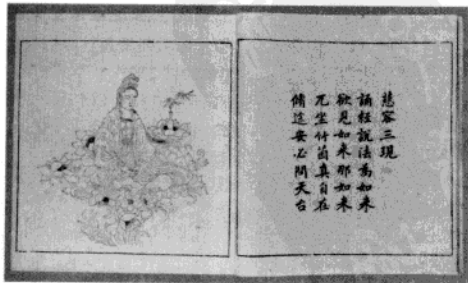 慈容三現
誦經說法為如來
欲見如來那如來
兀坐竹菌真自在
脩途安必問天台